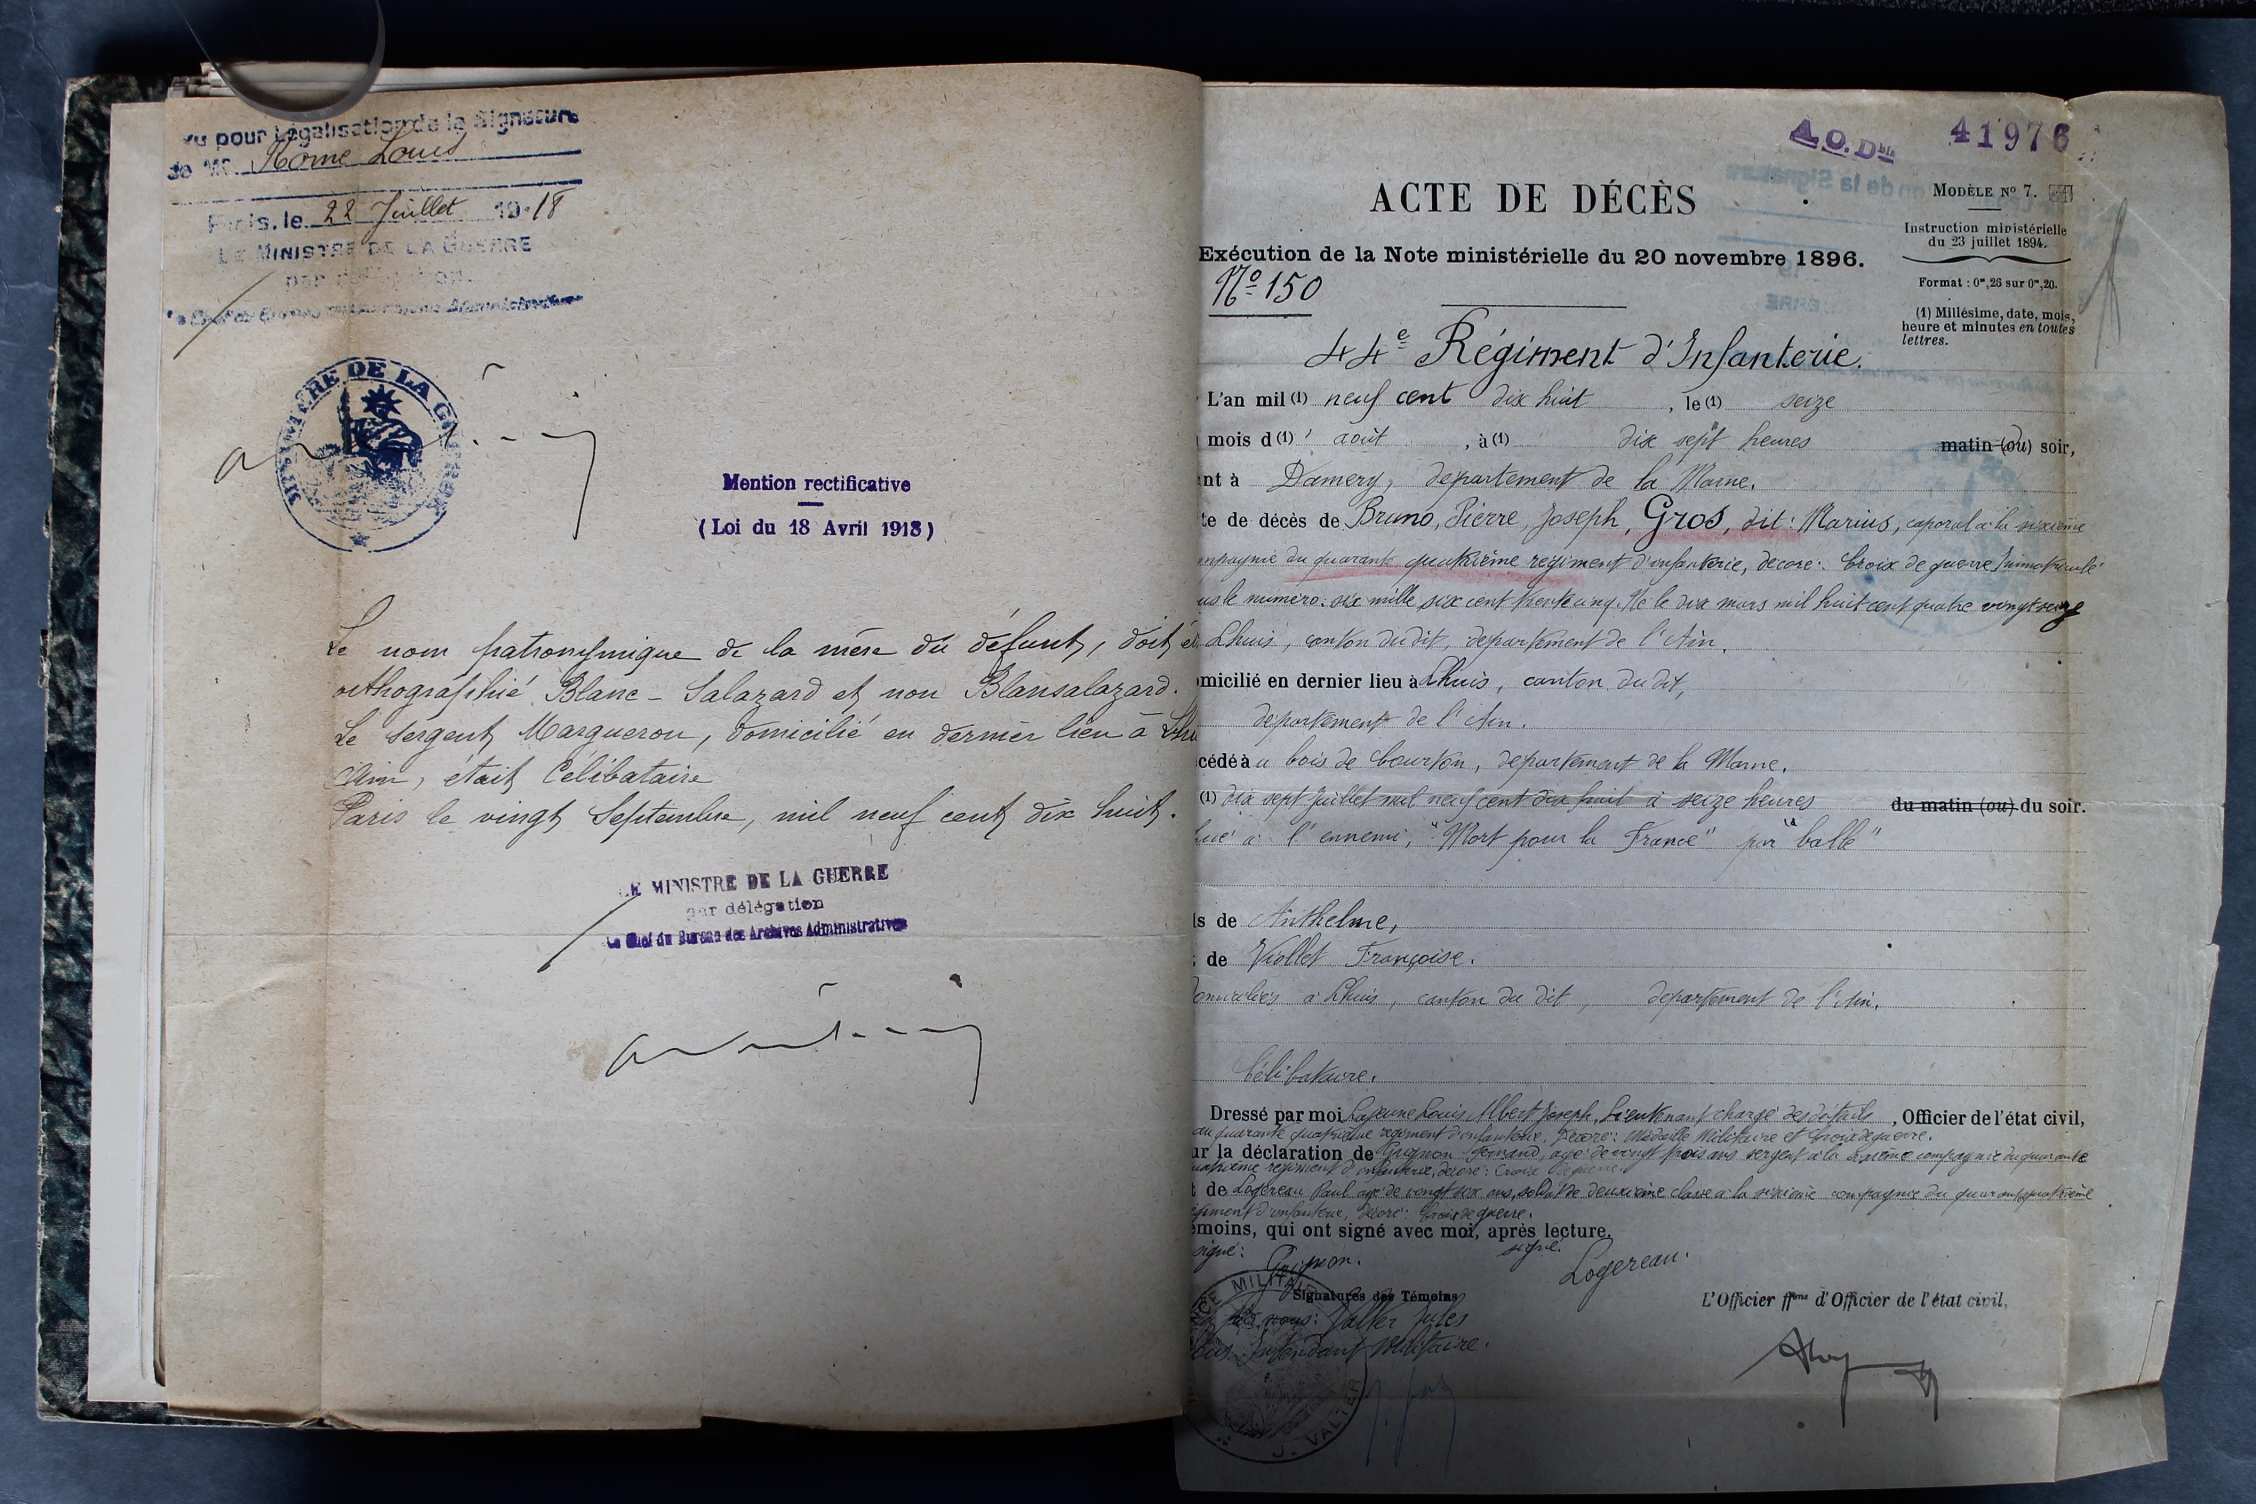 Vu pour Légalisation de la Signature
de Mr. Kome Louis
Paris, le 22 Juillet 1918
LE MINISTRE DE LA GUERRE
par délégation
MINISTÈRE DE LA GUERRE
Mention rectificative
(Loi du 18 Avril 1918)
Le nom patronymique de la mère du défunt, doit êt
orthographié Blanc-Salazard et non Blansalazard.
Le sergent Margueron, domicilié en dernier lieu à Lhu
Ain, était Célibataire
Paris le vingt Septembre, mil neuf cent dix huit.
LE MINISTRE DE LA GUERRE
par délégation
Le Chef du Bureau des Archives Administratives
A.O. Dbis 41976
ACTE DE DÉCÈS
MODÈLE No 7.
Instruction ministérielle
du 23 juillet 1894.
Exécution de la Note ministérielle du 20 novembre 1896.
No 150
Format : 0m,26 sur 0m,20.
(1) Millésime, date, mois,
heure et minutes en toutes
lettres.
44e Régiment d'Infanterie.
L'an mil (1) neuf cent dix huit, le (1) seize
mois d (1) ' août, à (1) dix sept heures matin (ou) soir,
nt à Damery, département de la Marne.
te de décès de Bruno, Pierre, Joseph, Gros, dit: Marius, caporal à la sixième
mpagnie du quarante quatrième régiment d'infanterie, décoré: Croix de guerre Immatriculé
us le numéro: six mille six cent trente cinq. Né le dix mars mil huit cent quatre vingt seize
Lhuis, canton du dit, département de l'Ain.
omicilié en dernier lieu à Lhuis, canton du dit,
département de l'Ain.
cédé à u bois de Courton, département de la Marne.
(1) dix sept Juillet mil neuf cent dix huit à seize heures du matin (ou) du soir.
tué à l'ennemi, "Mort pour la France" par "balle"
ls de Anthelme,
de Viollet Françoise.
domiciliés à Lhuis, canton du dit, département de l'Ain.
Célibataire.
Dressé par moi Lajeune Louis Albert Joseph, Lieutenant chargé des détails, Officier de l'état civil,
au quarante quatrième régiment d'infanterie, Décoré: Médaille Militaire et Croix de guerre.
ur la déclaration de Grignon Fernand, agé de vingt trois ans sergent à la sixième compagnie du quarante
quatrième régiment d'infanterie, décoré: Croix de guerre.
t de Logereau Paul agé de vingt six ans, soldat de deuxième classe à la sixième compagnie du quarante quatrième
égiment d'infanterie, décoré: Croix de guerre.
émoins, qui ont signé avec moi, après lecture.
signé: Grignon. signé. Logereau.
Signatures des Témoins
L'Officier ffons d'Officier de l'état civil,
Valter Jules
Sous Intendant Militaire.
NCE MILITAIRE
J. VALTER